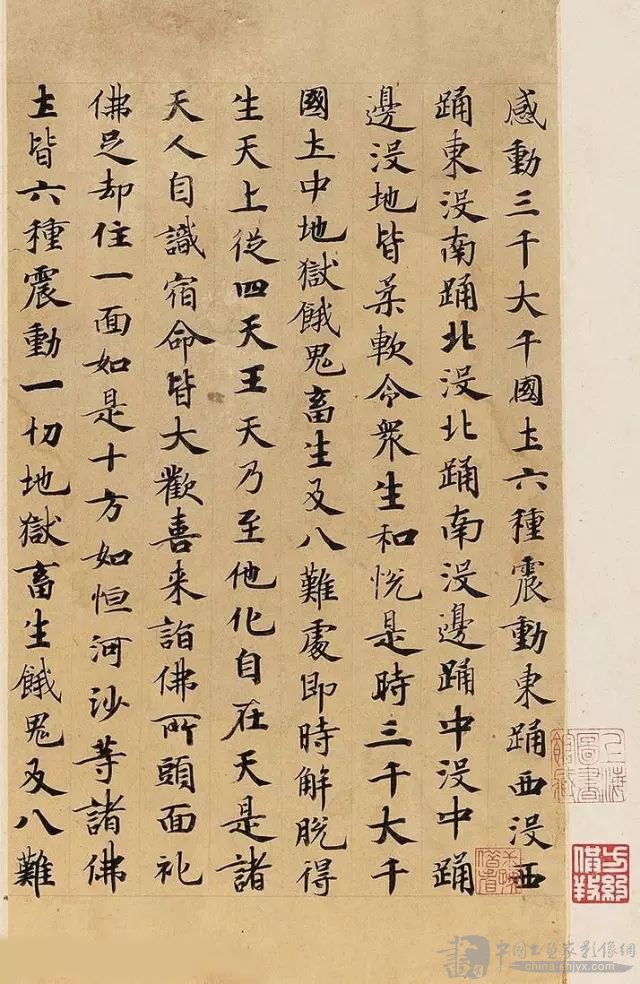 感動三千大千國土六種震動東踊西没西
踊東没南踊北没北踊南没邊踊中没中踊
邊没地皆柔軟令衆生和悅是時三千大千
國土中地獄餓鬼畜生及八難處即時解脫得
生天上從四天王天乃至他化自在天是諸
天人自識宿命皆大歡喜来詣佛所頭面礼
佛足却住一面如是十方如恒河沙等諸佛
土皆六種震動一切地獄畜生餓鬼及八難
上海圖書館藏
china-shjyx.com